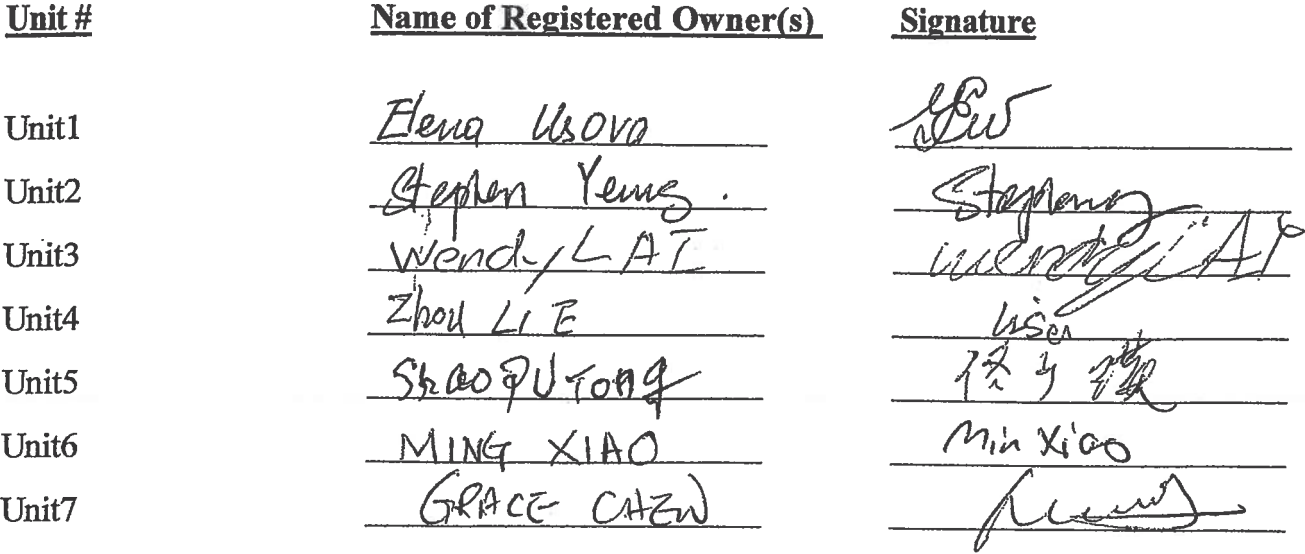 Unit # Name of Registered Owner(s) Signature
Unit1 Elena Usova
Unit2 Stephen Yeung.
Unit3 Wendy LAI wendy LAI
Unit4 Zhou LI E
Unit5 Shao QU TONG
Unit6 MING XIAO Min Xiao
Unit7 GRACE CHEN